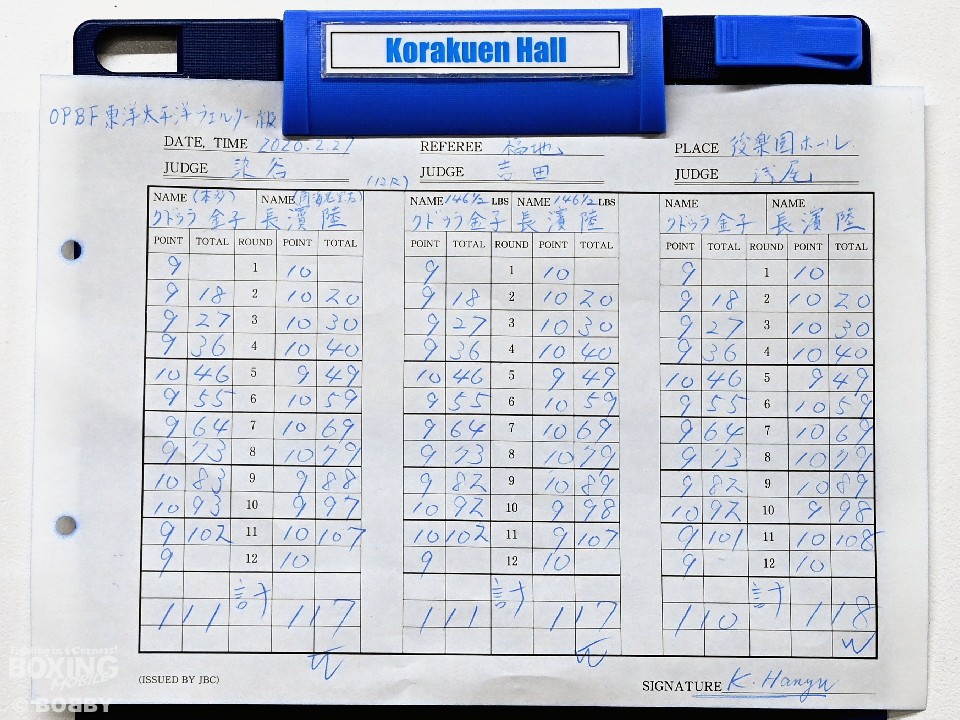 Korakuen Hall
OPBF東洋太平洋ウェルター級
DATE, TIME 2020.2.27 REFEREE 福地 PLACE 後楽園ホール
JUDGE 染谷 (12R) JUDGE 吉田 JUDGE 浅尾
NAME (本多) NAME NAME 146 1/2 LBS NAME 146 1/2 LBS NAME NAME
クドゥラ金子 長濱陸 クドゥラ金子 長濱陸 クドゥラ金子 長濱陸
POINT TOTAL ROUND POINT TOTAL POINT TOTAL ROUND POINT TOTAL POINT TOTAL ROUND POINT TOTAL
9 1 10 9 1 10 9 1 10
9 18 2 10 20 9 18 2 10 20 9 18 2 10 20
9 27 3 10 30 9 27 3 10 30 9 27 3 10 30
9 36 4 10 40 9 36 4 10 40 9 36 4 10 40
10 46 5 9 49 10 46 5 9 49 10 46 5 9 49
9 55 6 10 59 9 55 6 10 59 9 55 6 10 59
9 64 7 10 69 9 64 7 10 69 9 64 7 10 69
9 73 8 10 79 9 73 8 10 79 9 73 8 10 79
10 83 9 9 88 9 82 9 10 89 9 82 9 10 89
10 93 10 9 97 10 92 10 9 98 10 92 10 9 98
9 102 11 10 107 10 102 11 9 107 9 101 11 10 108
9 12 10 9 12 10 9 12 10
計 計 計
111 117 111 117 110 118
W W W
(ISSUED BY JBC) SIGNATURE K. Hanyu
Fighting in 4 Corners!
BOXING
MOBILES
© BOABY